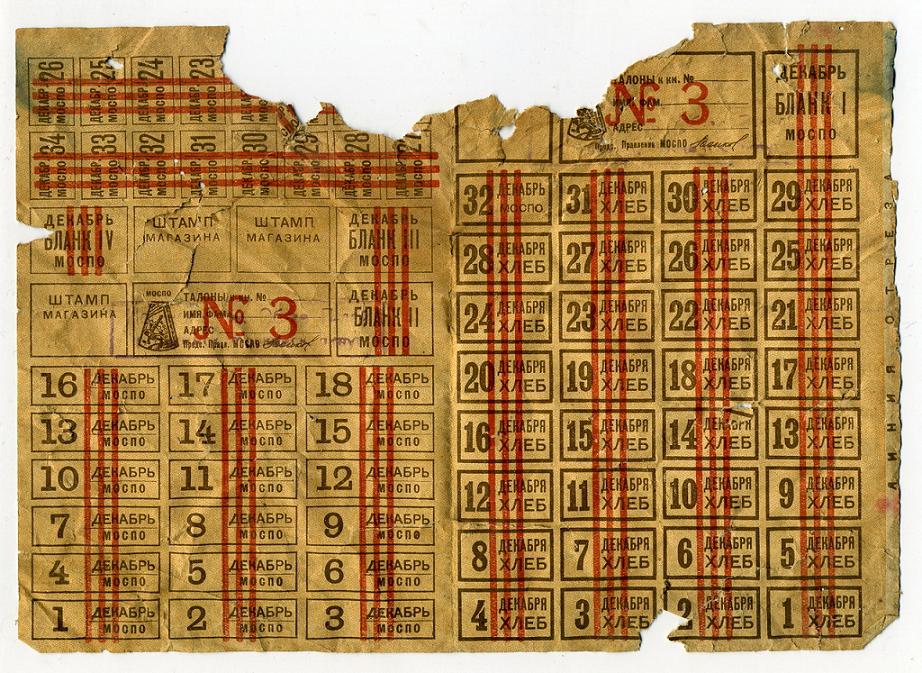 ДЕКАБР. 26 МОСПО
ДЕКАБР. 25 МОСПО
ДЕКАБР. 24 МОСПО
ДЕКАБР. 23 МОСПО
ДЕКАБР. 34 МОСПО
ДЕКАБР. 33 МОСПО
ДЕКАБР. 32 МОСПО
ДЕКАБР. 31 МОСПО
ДЕКАБР. 30 МОСПО
ДЕКАБР. 29 МОСПО
ДЕКАБР. 28 МОСПО
ДЕКАБР. МОСПО
ДЕКАБРЬ ШТАМП ШТАМП ДЕКАБРЬ
БЛАНК IV МАГАЗИНА МАГАЗИНА БЛАНК III
МОСПО МОСПО
ШТАМП
МАГАЗИНА
МОСПО
ТАЛОНЫ к кн. №
№ 3
ИМЯ, ФАМ.
АДРЕС
Предс. Правл. МОСПО
ДЕКАБРЬ
БЛАНК II
МОСПО
16 ДЕКАБРЬ МОСПО 17 ДЕКАБРЬ МОСПО 18 ДЕКАБРЬ МОСПО
13 ДЕКАБРЬ МОСПО 14 ДЕКАБРЬ МОСПО 15 ДЕКАБРЬ МОСПО
10 ДЕКАБРЬ МОСПО 11 ДЕКАБРЬ МОСПО 12 ДЕКАБРЬ МОСПО
7 ДЕКАБРЬ МОСПО 8 ДЕКАБРЬ МОСПО 9 ДЕКАБРЬ МОСПО
4 ДЕКАБРЬ МОСПО 5 ДЕКАБРЬ МОСПО 6 ДЕКАБРЬ МОСПО
1 ДЕКАБРЬ МОСПО 2 ДЕКАБРЬ МОСПО 3 ДЕКАБРЬ МОСПО
ТАЛОНЫ к кн. №
№ 3
ИМЯ, ФАМ.
АДРЕС
Предс. Правления МОСПО
ДЕКАБРЬ
БЛАНК I
МОСПО
32 ДЕКАБРЬ МОСПО 31 ДЕКАБРЯ ХЛЕБ 30 ДЕКАБРЯ ХЛЕБ 29 ДЕКАБРЯ ХЛЕБ
28 ДЕКАБРЯ ХЛЕБ 27 ДЕКАБРЯ ХЛЕБ 26 ДЕКАБРЯ ХЛЕБ 25 ДЕКАБРЯ ХЛЕБ
24 ДЕКАБРЯ ХЛЕБ 23 ДЕКАБРЯ ХЛЕБ 22 ДЕКАБРЯ ХЛЕБ 21 ДЕКАБРЯ ХЛЕБ
20 ДЕКАБРЯ ХЛЕБ 19 ДЕКАБРЯ ХЛЕБ 18 ДЕКАБРЯ ХЛЕБ 17 ДЕКАБРЯ ХЛЕБ
16 ДЕКАБРЯ ХЛЕБ 15 ДЕКАБРЯ ХЛЕБ 14 ДЕКАБРЯ ХЛЕБ 13 ДЕКАБРЯ ХЛЕБ
12 ДЕКАБРЯ ХЛЕБ 11 ДЕКАБРЯ ХЛЕБ 10 ДЕКАБРЯ ХЛЕБ 9 ДЕКАБРЯ ХЛЕБ
8 ДЕКАБРЯ ХЛЕБ 7 ДЕКАБРЯ ХЛЕБ 6 ДЕКАБРЯ ХЛЕБ 5 ДЕКАБРЯ ХЛЕБ
4 ДЕКАБРЯ ХЛЕБ 3 ДЕКАБРЯ ХЛЕБ 2 ДЕКАБРЯ ХЛЕБ 1 ДЕКАБРЯ ХЛЕБ
ЛИНИЯ ОТРЕЗ